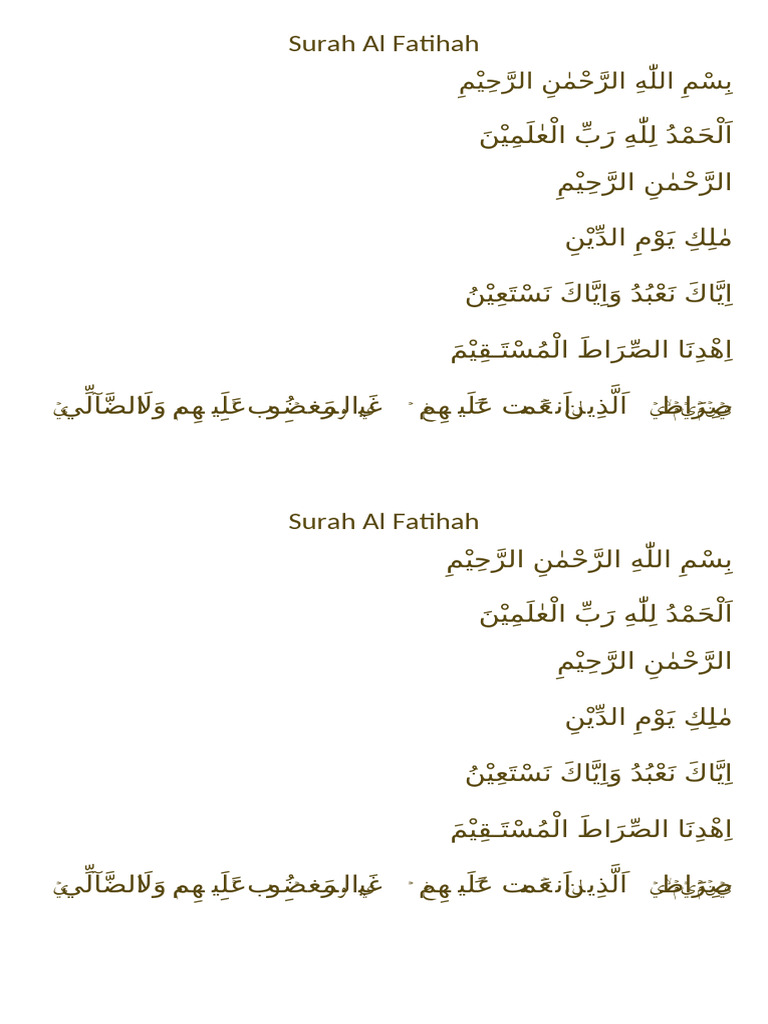 Surah Al Fatihah
بِسْمِ اللّٰهِ الرَّحْمٰنِ الرَّحِيْمِ
اَلْحَمْدُ لِلّٰهِ رَبِّ الْعٰلَمِيْنَ
الرَّحْمٰنِ الرَّحِيْمِ
مٰلِكِ يَوْمِ الدِّيْنِ
اِيَّاكَ نَعْبُدُ وَاِيَّاكَ نَسْتَعِيْنُ
اِهْدِنَا الصِّرَاطَ الْمُسْتَـقِيْمَ
صِرَاطَ
Surah Al Fatihah
بِسْمِ اللّٰهِ الرَّحْمٰنِ الرَّحِيْمِ
اَلْحَمْدُ لِلّٰهِ رَبِّ الْعٰلَمِيْنَ
الرَّحْمٰنِ الرَّحِيْمِ
مٰلِكِ يَوْمِ الدِّيْنِ
اِيَّاكَ نَعْبُدُ وَاِيَّاكَ نَسْتَعِيْنُ
اِهْدِنَا الصِّرَاطَ الْمُسْتَـقِيْمَ
صِرَاطَ